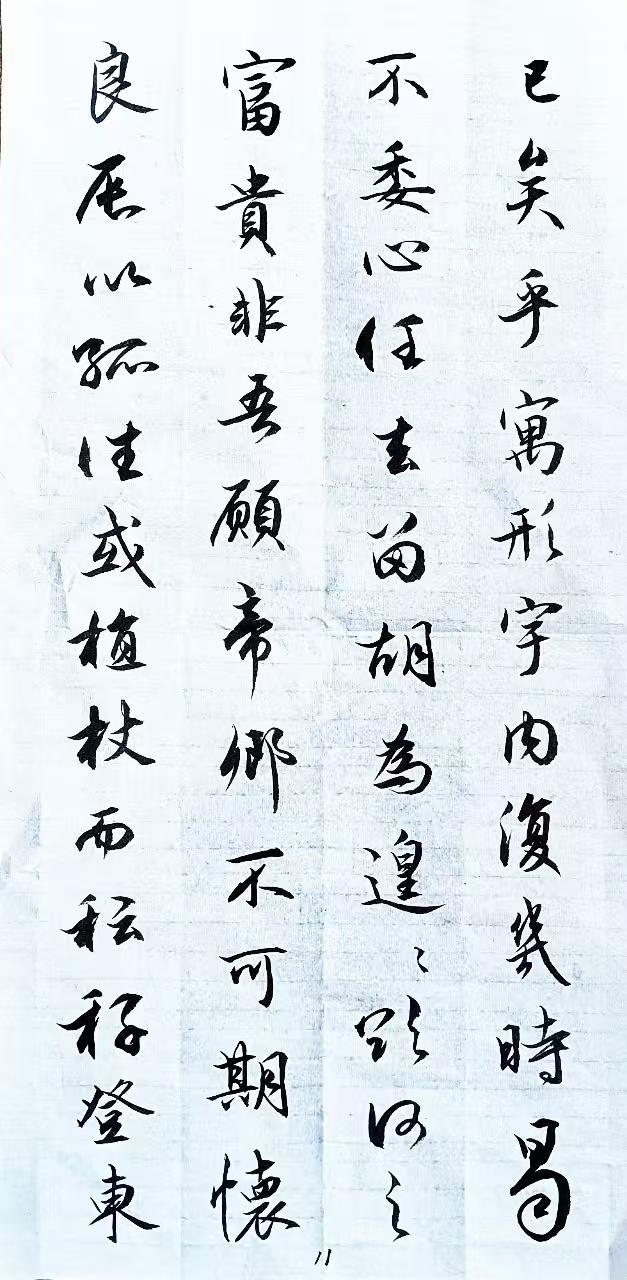 已矣乎寓形宇内復幾時曷
不委心任去留胡為遑〻欲何之
富貴非吾願帝鄉不可期懷
良辰以孤往或植杖而耘耔登東
11